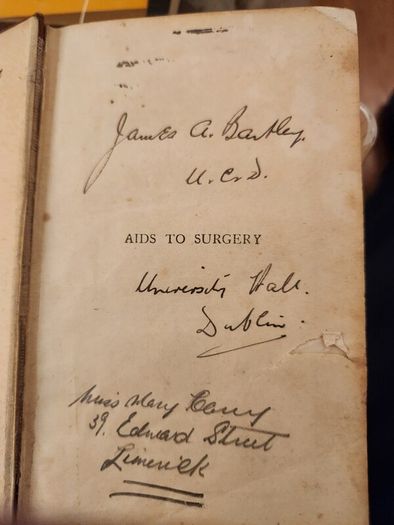 James A. Bartley.
U.C.D.
AIDS TO SURGERY
University Hall.
Dublin.
Miss Mary
39, Edward Street
Limerick